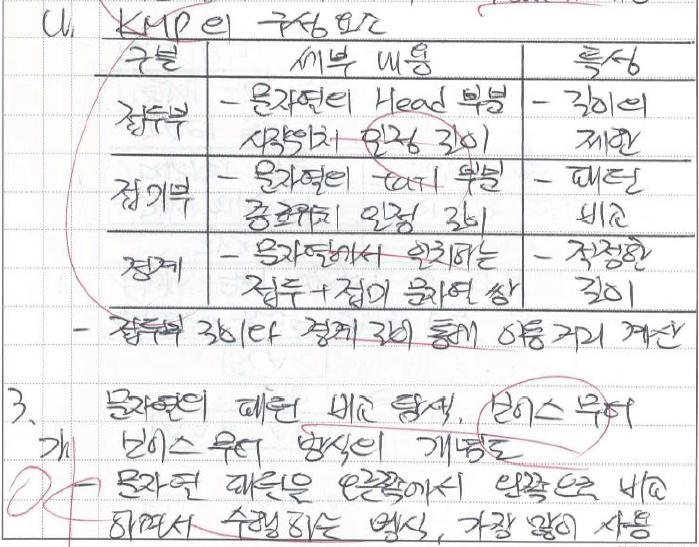 나. KMP의 구성요소
구분 세부 내용 특성
접두부 - 문자열의 Head 부분 - 길이의
시작위치 일정 길이 제한
접미부 - 문자열의 tail 부분 - 패턴
종료위치 일정 길이 비교
경계 - 문자열에서 일치하는 - 적정한
접두+접미 문자열 쌍 길이
- 접두부 길이와 경계 길이 통해 이동거리 계산
3. 문자열의 패턴 비교 탐색, 보이스 무어
가. 보이스 무어 방식의 개념도
- 문자열 패턴을 오른쪽에서 왼쪽으로 비교
하면서 수행하는 방식, 가장 많이 사용